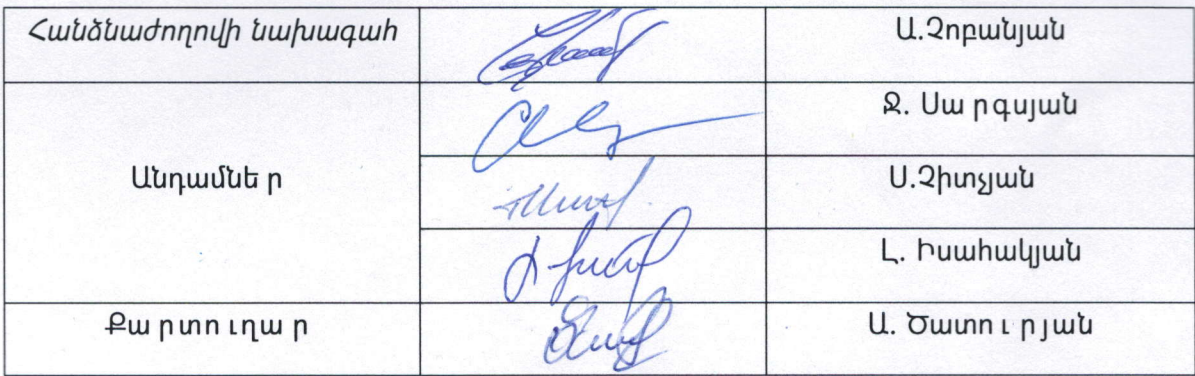 Հանձնաժողովի նախագահ Ա.Չոբանյան
Ջ. Սարգսյան
Անդամներ Ս.Չիտչյան
Լ. Իսահակյան
Քարտուղար Ա. Ծատուրյան